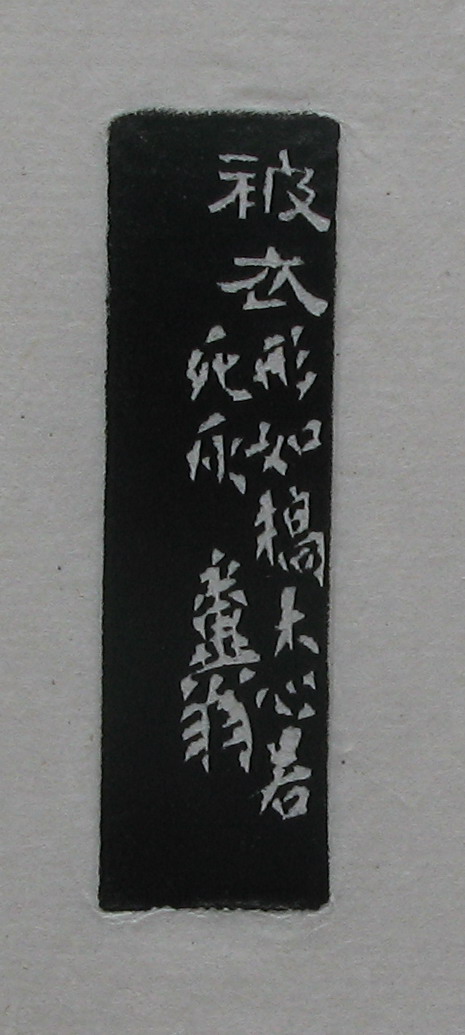 被衣
形如槁木心若
死灰 糞翁